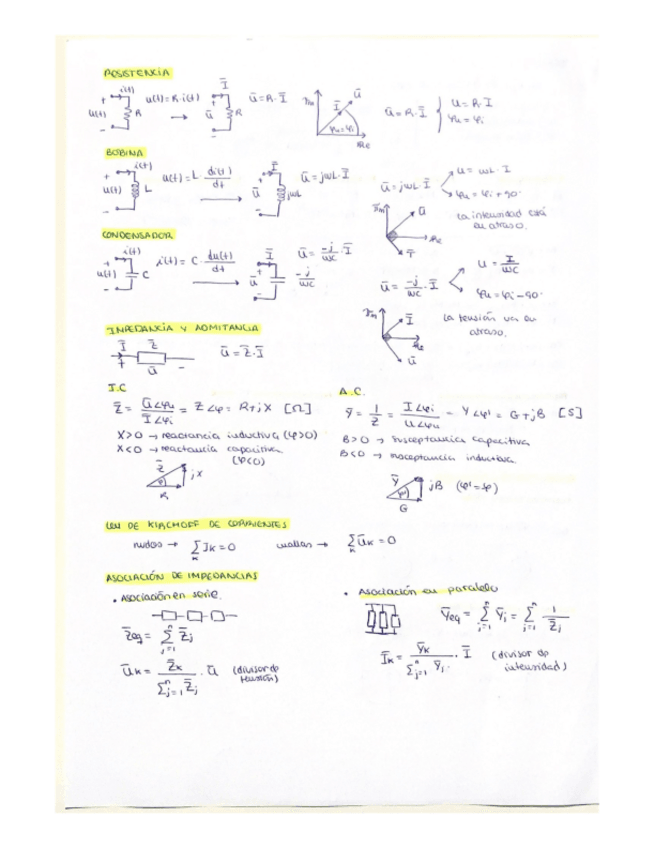 RESISTENCIA
i(t)
u(t) R u(t)=R·i(t) → Ī ū R ū=R·Ī
Im Ī ū φu=φi Re
ū=R·Ī { U=R·I
φu=φi
BOBINA
i(t)
u(t) L u(t)=L· di(t)/dt → Ī ū jωL ū=jωL·Ī
ū=jωL·Ī U=ωL·I
φu=φi+90º
Im ū Re Ī
la intensidad está
en atraso.
CONDENSADOR
i(t)
u(t) C i(t)=C· du(t)/dt → Ī ū -j/ωC ū= -j/ωC ·Ī
ū= -j/ωC ·Ī U= I/ωC
φu=φi-90º
Im Ī Re ū
la tensión va en
atraso.
IMPEDANCIA Y ADMITANCIA
Ī Z̄ + ū - ū=Z̄·Ī
I.C
Z̄= Ū∠φu / I∠φi = Z∠φ= R+jX [Ω]
X>0 → reactancia inductiva (φ>0)
X<0 → reactancia capacitiva
(φ<0)
Z̄ φ jX
R
A.C.
Ȳ= 1/Z̄ = I∠φi / U∠φu = Y∠φ' = G+jB [S]
B>0 → susceptancia capacitiva
B<0 → susceptancia inductiva
Ȳ φ' jB (φ'=φ)
G
LEY DE KIRCHOFF DE CORRIENTES
nudos → ∑k Ik=0 mallas → ∑k Ūk=0
ASOCIACIÓN DE IMPEDANCIAS
• Asociación en serie.
Z̄eq= ∑j=1^n Z̄j
Ūk= Z̄k / ∑j=1^n Z̄j · Ū (divisor de
tensión)
• Asociación en paralelo
Ȳeq= ∑j=1^n Ȳj = ∑j=1^n 1/Z̄j
Īk= Ȳk / ∑j=1^n Ȳj · Ī (divisor de
intensidad)